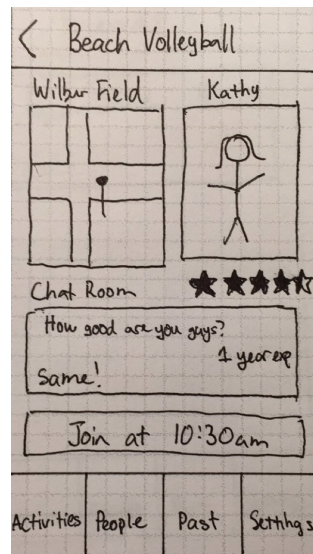 < Beach Volleyball
Wilbur Field Kathy
Chat Room
How good are you guys?
1 year exp
Same!
Join at 10:30am
Activities People Past Settings